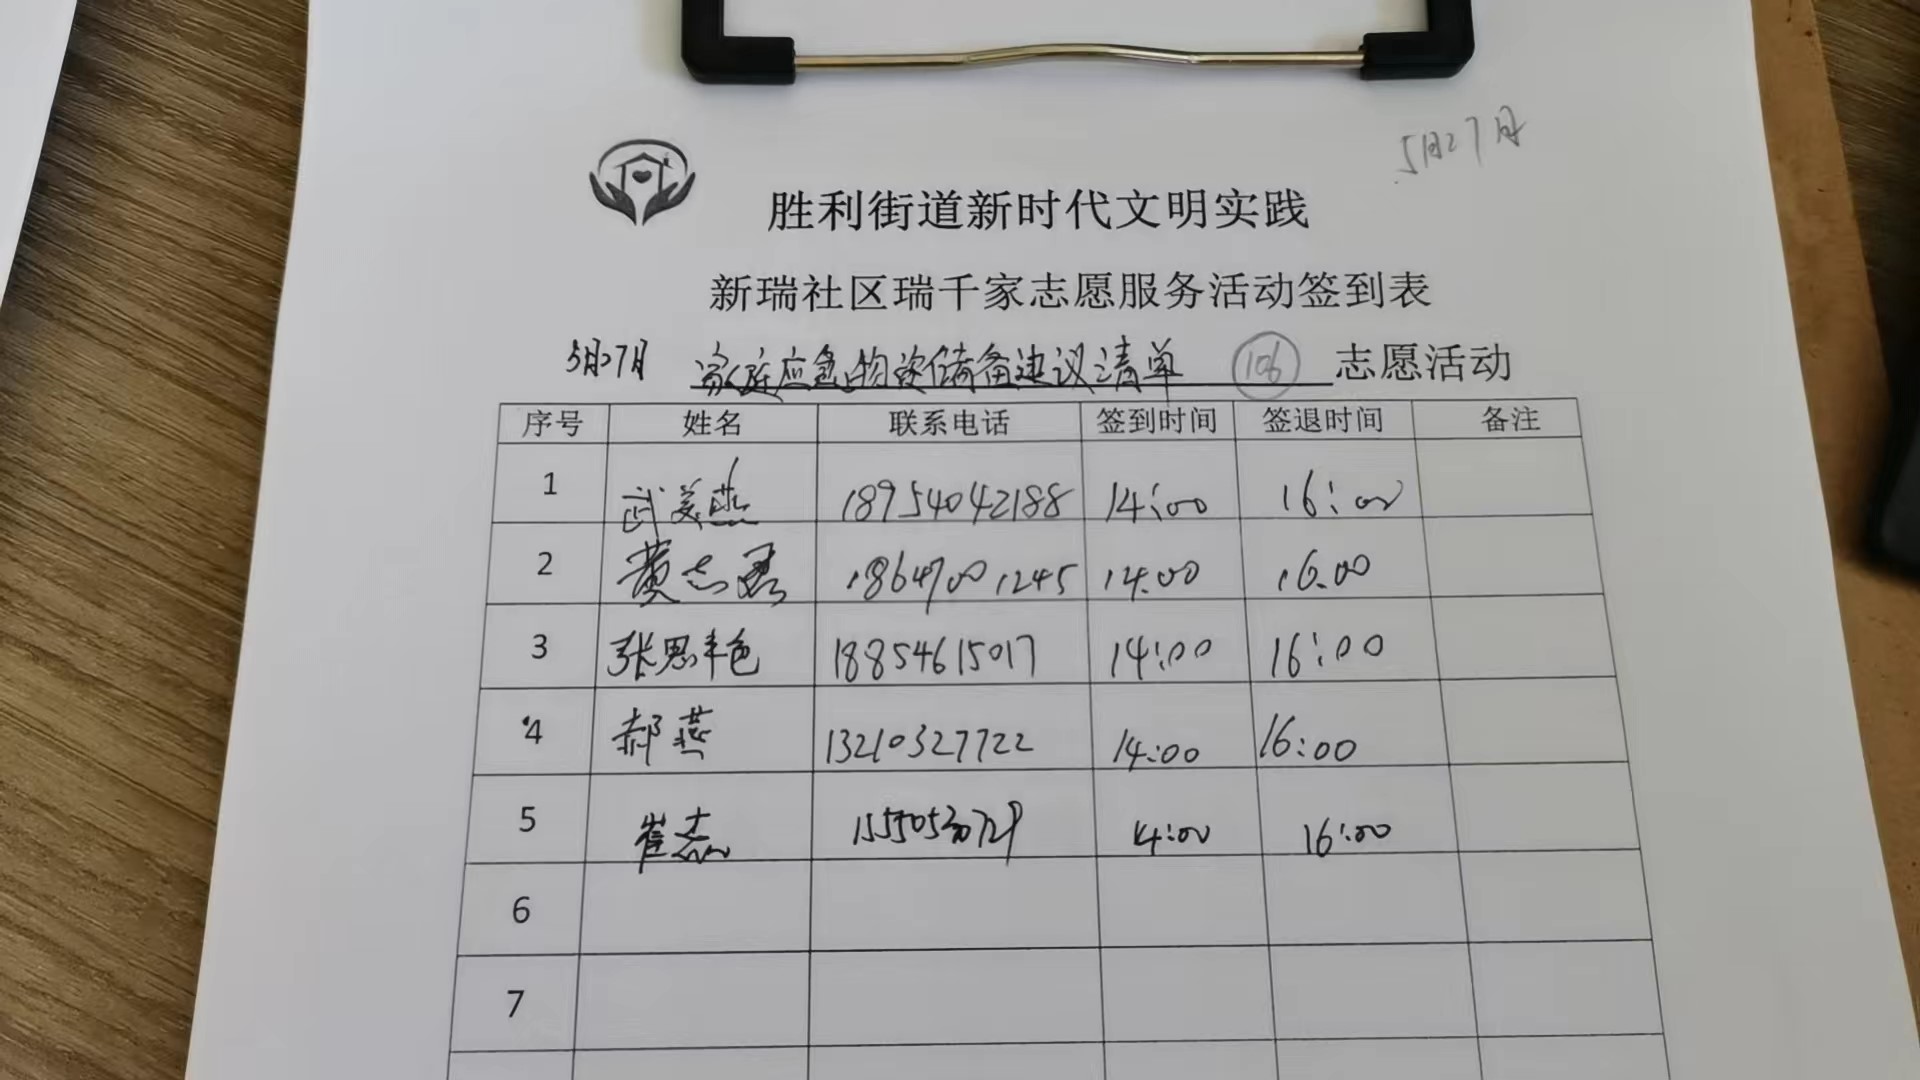 5月27日
胜利街道新时代文明实践
新瑞社区瑞千家志愿服务活动签到表
5月27日 家庭应急物资储备建议清单 106 志愿活动
序号 姓名 联系电话 签到时间 签退时间 备注
1 武美燕 18954042188 14:00 16:00
2 黄志 18647001245 14:00 16:00
3 张思艳 18854615017 14:00 16:00
4 郝燕 13210327722 14:00 16:00
5 崔志 14:00 16:00
6
7